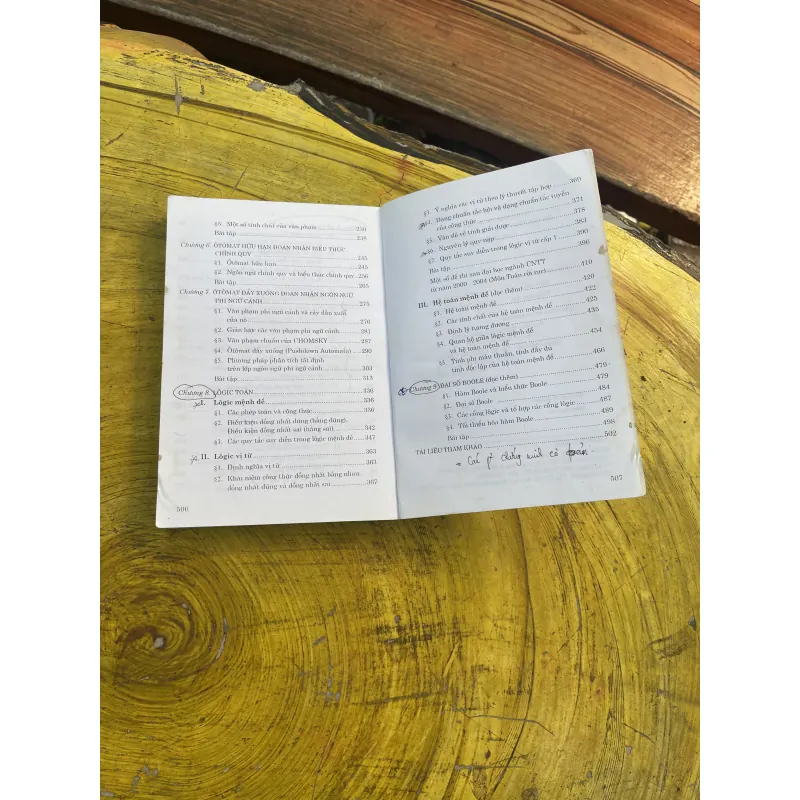 §6. Một số tính chất của văn phạm 250
Bài tập 258
Chương 6. ÔTÔMAT HỮU HẠN ĐOÁN NHẬN BIỂU THỨC
CHÍNH QUY 245
§1. Ôtômat hữu hạn 245
§2. Ngôn ngữ chính quy và biểu thức chính quy 256
Bài tập 265
Chương 7. ÔTÔMAT ĐẨY XUỐNG ĐOÁN NHẬN NGÔN NGỮ
PHI NGỮ CẢNH 275
§1. Văn phạm phi ngữ cảnh và cây dẫn xuất
của nó 277
§2. Giản lược các văn phạm phi ngữ cảnh 281
§3. Văn phạm chuẩn của CHOMSKY 287
§4. Ôtômat đẩy xuống (Pushdown Automata) 290
§5. Phương pháp phân tích tất định
trên lớp ngôn ngữ phi ngữ cảnh 303
Bài tập 313
Chương 8. LÔGIC TOÁN 336
I. Lôgic mệnh đề 336
§1. Các phép toán và công thức 336
§2. Điều kiện đồng nhất đúng (hằng đúng)
Điều kiện đồng nhất sai (hằng sai) 342
§3. Các quy tắc suy diễn trong lôgic mệnh đề 347
II. Lôgic vị từ 363
§1. Định nghĩa vị từ 363
§2. Khái niệm công thức đồng nhất bằng nhau,
đồng nhất đúng và đồng nhất sai 367
506
§3. Ý nghĩa các vị từ theo lý thuyết tập hợp 369
§4. Dạng chuẩn tắc hội và dạng chuẩn tắc tuyển
của công thức 371
§5. Vấn đề về tính giải được 378
§6. Nguyên lý quy nạp 383
§7. Quy tắc suy diễn trong lôgic vị từ cấp 1 390
Bài tập 390
Một số đề thi sau đại học ngành CNTT
từ năm 2000 - 2004 (Môn Toán rời rạc) 410
III. Hệ toán mệnh đề (đọc thêm) 420
§1. Hệ toán mệnh đề 422
§2. Các tính chất của hệ toán mệnh đề 425
§3. Định lý tương đương 435
§4. Quan hệ giữa lôgic mệnh đề
và hệ toán mệnh đề 454
§5. Tính phi mâu thuẫn, tính đầy đủ
tính độc lập của hệ toán mệnh đề 466
Chương 9. ĐẠI SỐ BOOLE (đọc thêm) 479
§1. Hàm Boole và biểu thức Boole 479
§2. Đại số Boole 484
§3. Các cổng lôgic và tổ hợp các cổng lôgic 487
§4. Tối thiểu hóa hàm Boole 489
Bài tập 498
TÀI LIỆU THAM KHẢO 502
chứng minh có
507